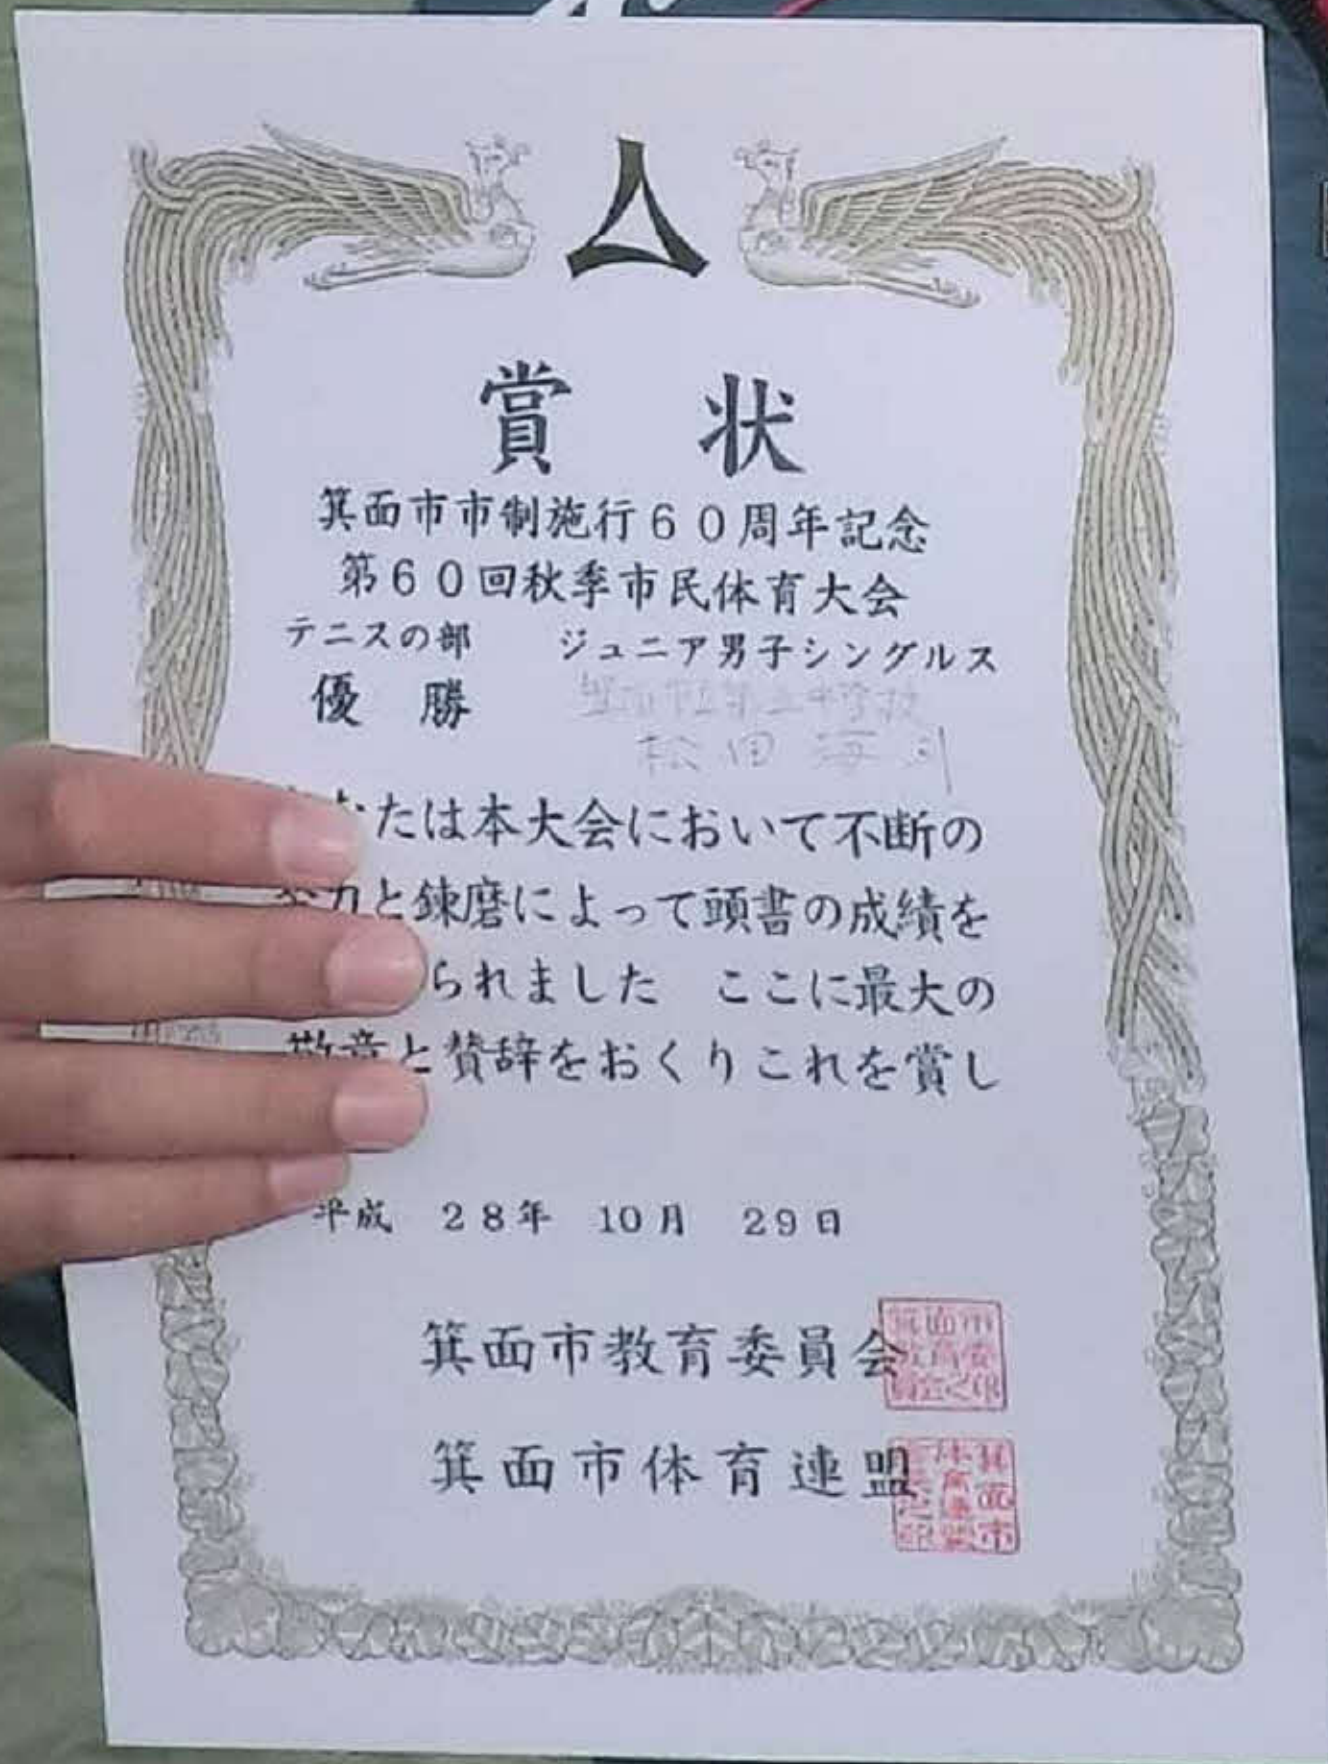 賞状
箕面市市制施行60周年記念
第60回秋季市民体育大会
テニスの部 ジュニア男子シングルス
優勝
松田海斗
たは本大会において不断の
力と錬磨によって頭書の成績を
られました ここに最大の
敬意と賛辞をおくりこれを賞し
平成 28年 10月 29日
箕面市教育委員会
箕面市体育連盟